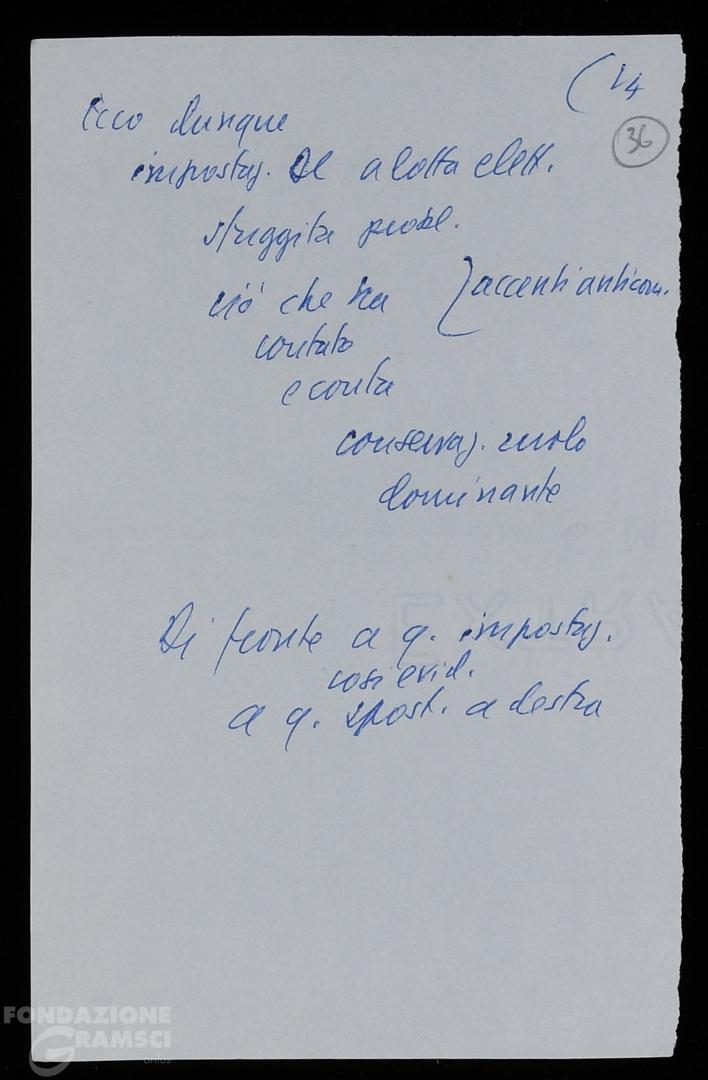 (14
36
Ecco dunque
impostaz. DC a lotta elett.
sfuggite probl.
ciò che ha } accenti anticom.
contato
e conta
conservaz. ruolo
dominante
Di fronte a q. impostaz.
così evid.
a q. spost. a destra
FONDAZIONE
GRAMSCI
onlus